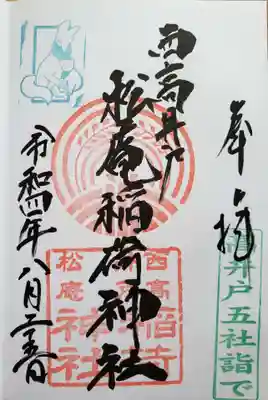 奉拝
西高井戸
松庵稲荷神社
令和四年八月二十五日
井戸五社詣で
西高
松庵
神社